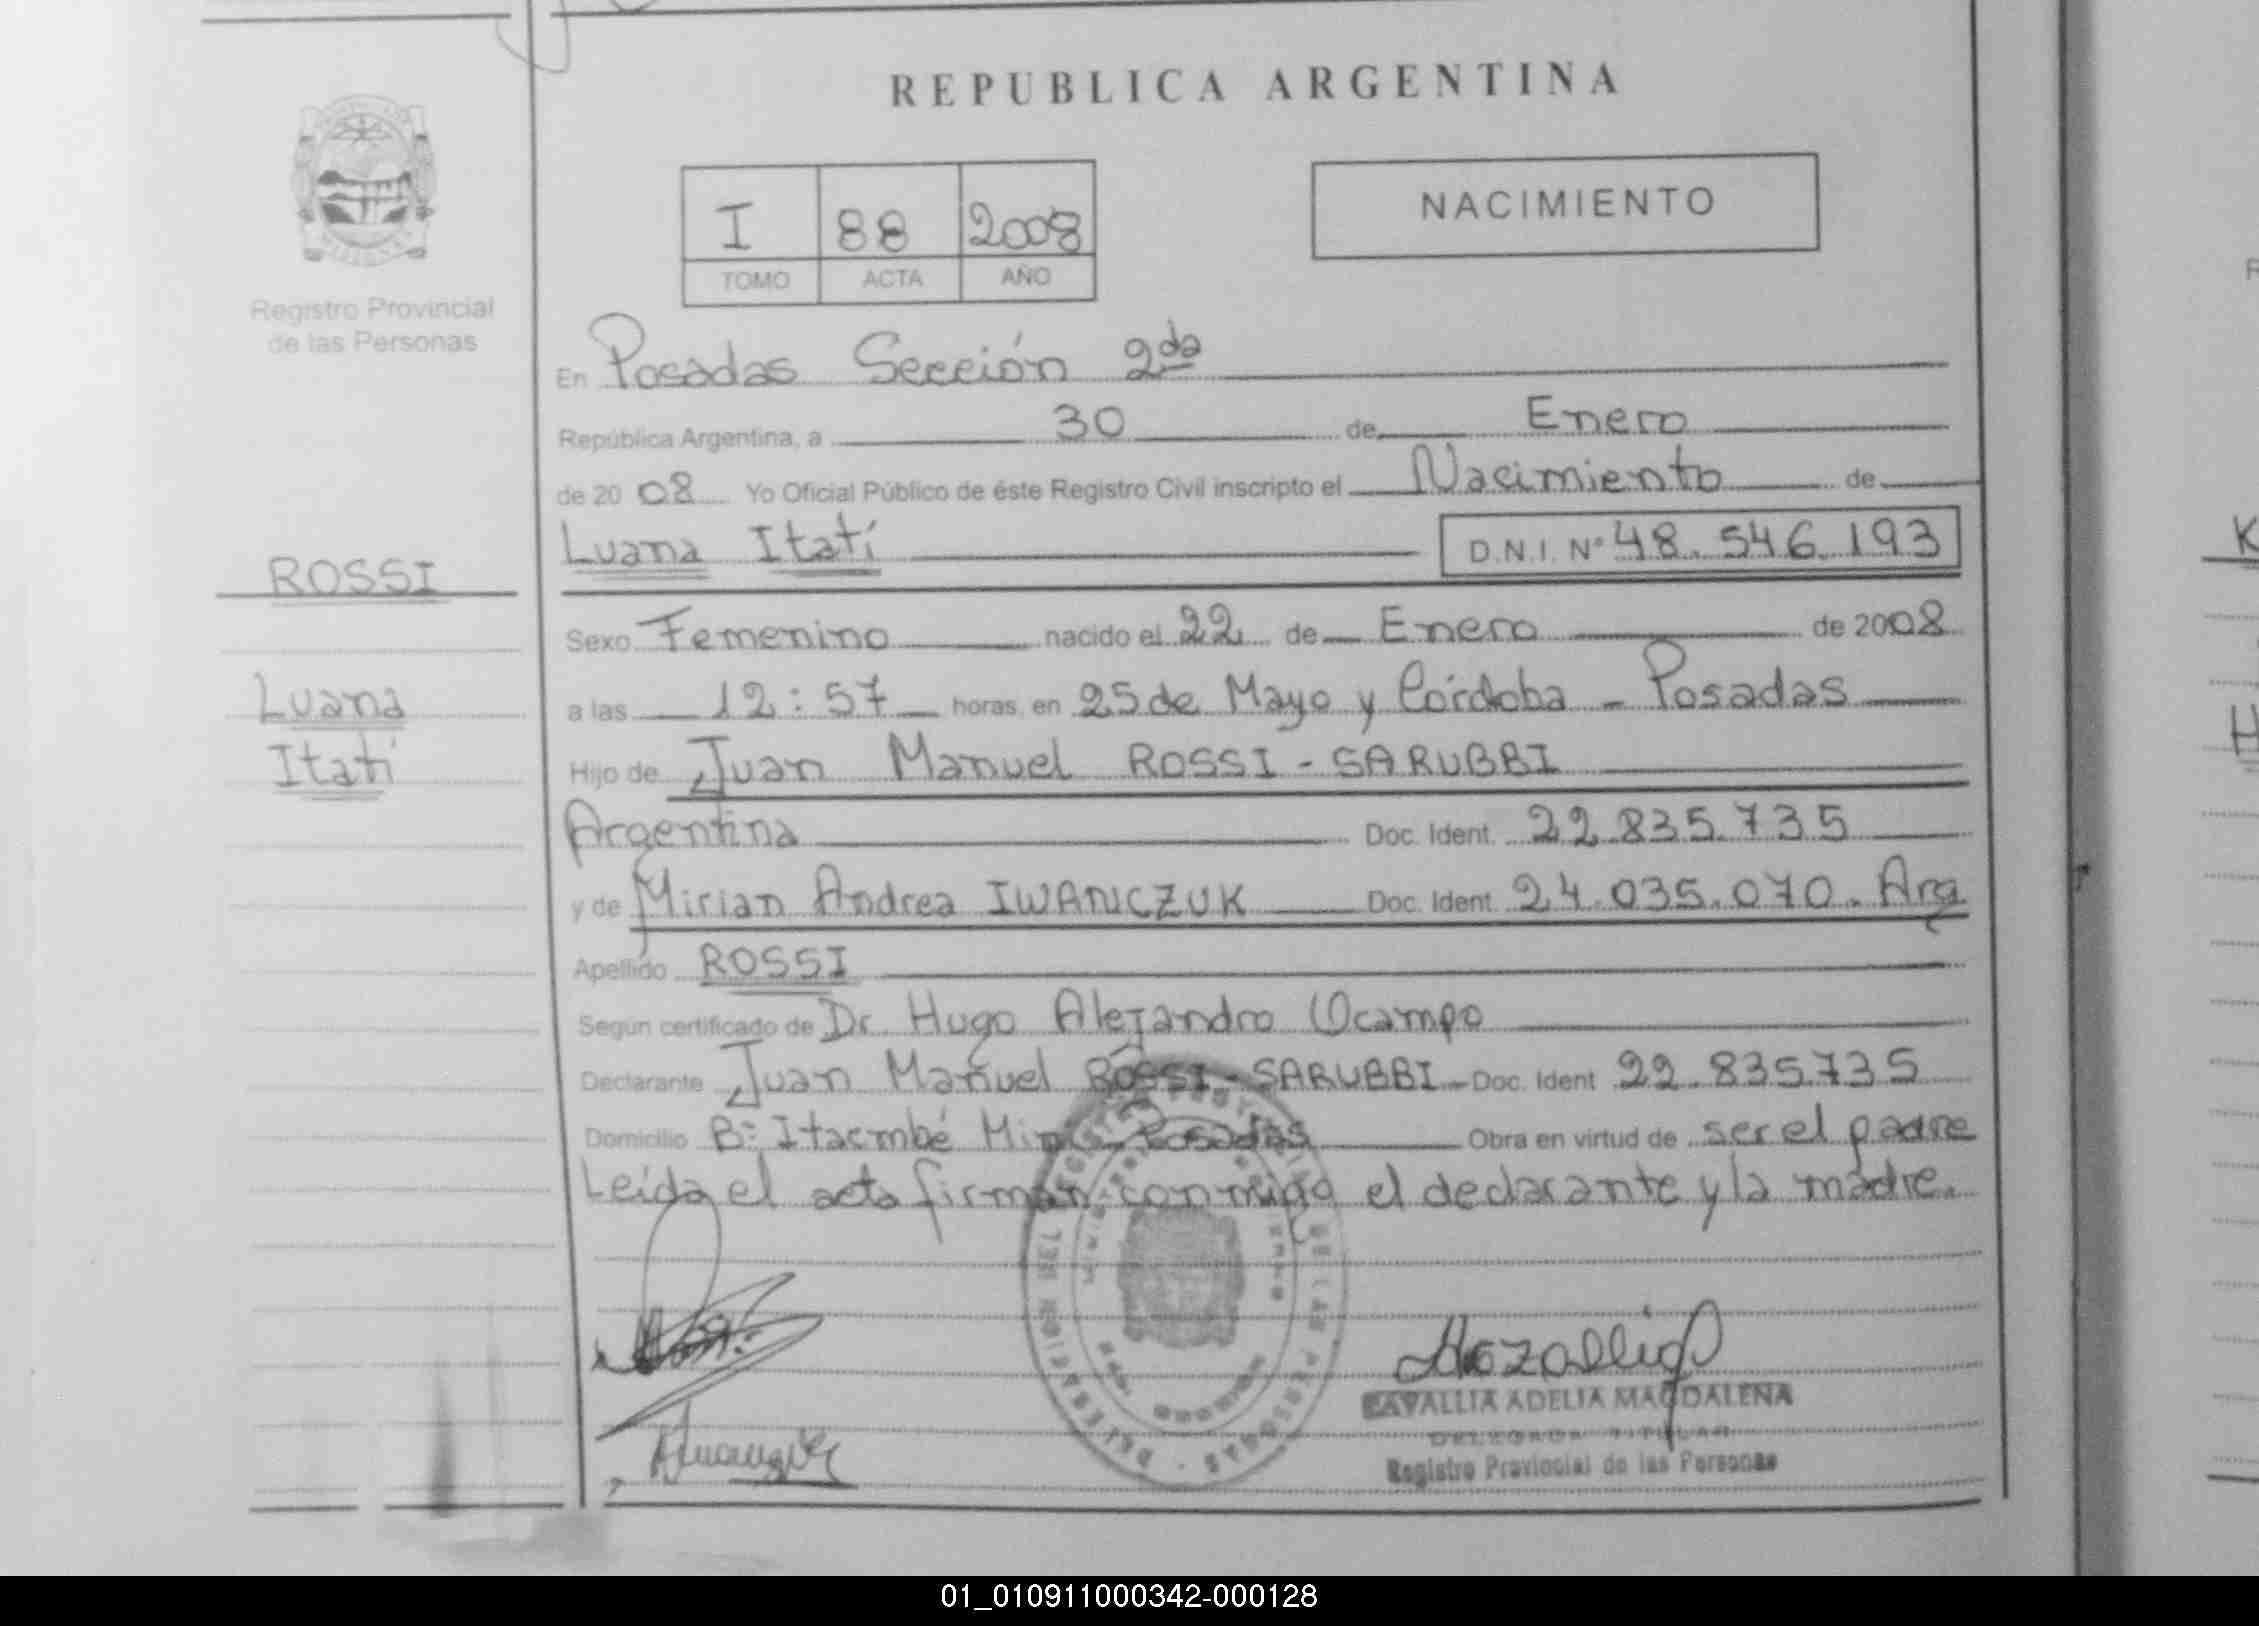 REPUBLICA ARGENTINA
I 88 2008
TOMO ACTA AÑO
NACIMIENTO
Registro Provincial
de las Personas
En Posadas Sección 2da
República Argentina, a 30 de Enero
de 2008 Yo Oficial Público de éste Registro Civil inscripto el Nacimiento de
Luana Itatí D.N.I. Nº 48.546.193
ROSSI
Luana
Itatí
Sexo Femenino nacido el 22 de Enero de 2008
a las 12:57 horas, en 25 de Mayo y Córdoba - Posadas
Hijo de Juan Manuel ROSSI - SARUBBI
Argentina Doc. Ident. 22.835.735
y de Mirian Andrea IWANICZUK Doc. Ident. 24.035.070. Arg
Apellido ROSSI
Según certificado de Dr. Hugo Alejandro Ocampo
Declarante Juan Manuel ROSSI - SARUBBI - Doc. Ident 22.835.735
Domicilio Bº Itaembé Miní - Posadas Obra en virtud de ser el padre
Leída el acta firman conmigo el declarante y la madre.
ADELIA MAGDALENA
DELEGADA TITULAR
Registro Provincial de las Personas
01_010911000342-000128